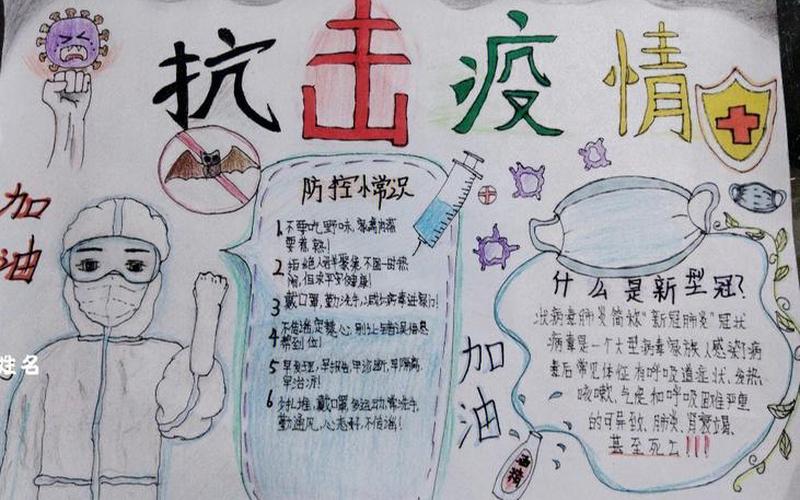 抗击疫情
加油
姓名
防控小常识
1 不要吃野味,家禽肉蛋
要煮熟!
2 拒绝人群聚集不图一时热
闹,但求平安健康!
3 戴口罩,勤洗手,减少病毒进家门!
4 不信谣,定慧心,别让错误信息
帮到位!
5 早发现,早报告,早诊断,早隔离,
早治疗!
6 少扎堆,戴口罩,多运动,常洗手,
勤通风,心态好,不信谣!
加油
什么是新型冠?
状病毒肺炎简称"新冠肺炎"冠状
病毒是一个大型病毒家族人感染了病
毒后常见体征有呼吸道症状、发热
咳嗽、气促和呼吸困难严重
的可导致肺炎、肾衰竭、
甚至死亡!!!